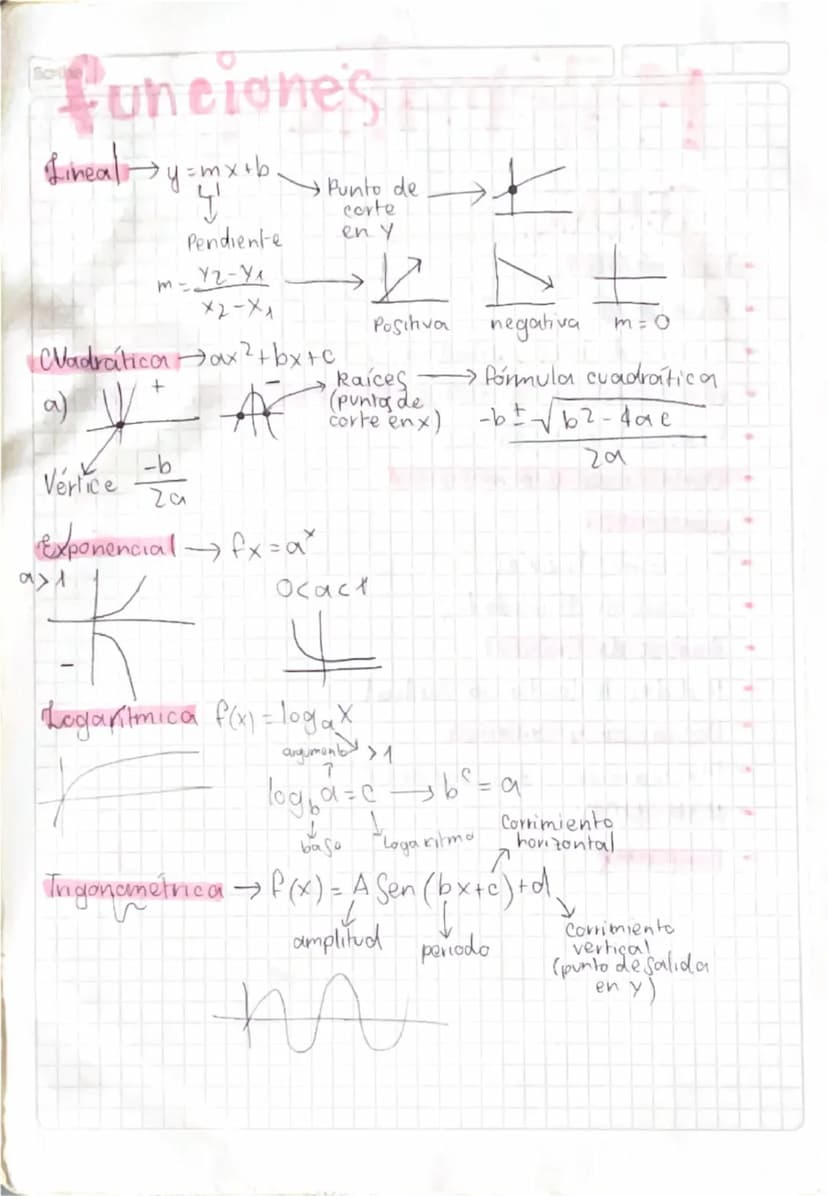 Scribe
funciones
Lineal → y = mx+b → Punto de corte en y →
Pendiente
m = y2-y1 / x2-x1 →
Positiva negativa m = 0
Cuadrática → ax²+bx+c
a) + - Raíces (puntos de corte en x) → fórmula cuadrática
-b ± √b2-4ac / 2a
Vértice -b / 2a
Exponencial → fx = aˣ
a > 1 0<a<1
-
Logarítmica f(x) = logₐx
argumento > 1
log_b a = c → bᶜ = a
base Logaritmo
Corrimiento horizontal
Trigonométrica → f(x) = A Sen (bx+c)+d
amplitud periodo Corrimiento
vertical
(punto de salida
en y)